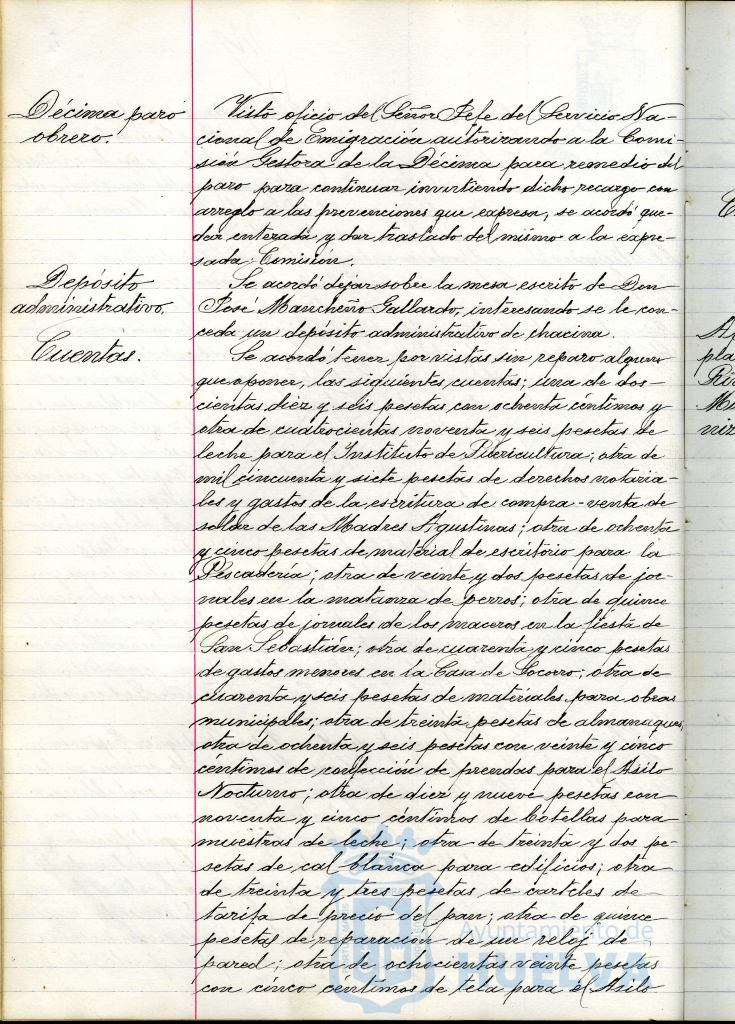 Décima paro
obrero.
Visto oficio del Señor Jefe del Servicio Na-
cional de Emigración autorizando a la Comi-
sión Gestora de la Décima para remedio del
paro para continuar invirtiendo dicho recargo con
arreglo a las prevenciones que expresa, se acordó que-
dar enterada y dar traslado del mismo a la expre-
sada Comision.
Depósito
administrativo.
Se acordó dejar sobre la mesa escrito de Don
José Mancheño Gallardo, interesando se le con-
ceda un depósito administrativo de chacina.
Cuentas.
Se acordó tener por vistas sin reparo alguno
que oponer, las siguientes cuentas; una de dos-
cientas diez y seis pesetas con ochenta céntimos y
otra de cuatrocientas noventa y seis pesetas de
leche para el Instituto de Puericultura; otra de
mil cincuenta y siete pesetas de derechos notaria-
les y gastos de la escritura de compra-venta de
solar de las Madres Agustinas; otra de ochenta
y cinco pesetas de material de escritorio para la
Pescadería; otra de veinte y dos pesetas de jor-
nales en la matanza de perros; otra de quince
pesetas de jornales de los maceros en la fiesta de
San Sebastián; otra de cuarenta y cinco pesetas
de gastos menores en la Casa de Socorro; otra de
cuarenta y seis pesetas de materiales para obras
municipales; otra de treinta pesetas de almanaques;
otra de ochenta y seis pesetas con veinte y cinco
céntimos de confección de prendas para el Asilo
Nocturno; otra de diez y nueve pesetas con
noventa y cinco céntimos de botellas para
muestras de leche; otra de treinta y dos pe-
setas de cal blanca para edificios; otra
de treinta y tres pesetas de carteles de
tarifa de precio del pan; otra de quince
pesetas de reparación de un reloj de
pared; otra de ochocientas veinte pesetas
con cinco céntimos de tela para el Asilo
Ayuntamiento de
HUELVA